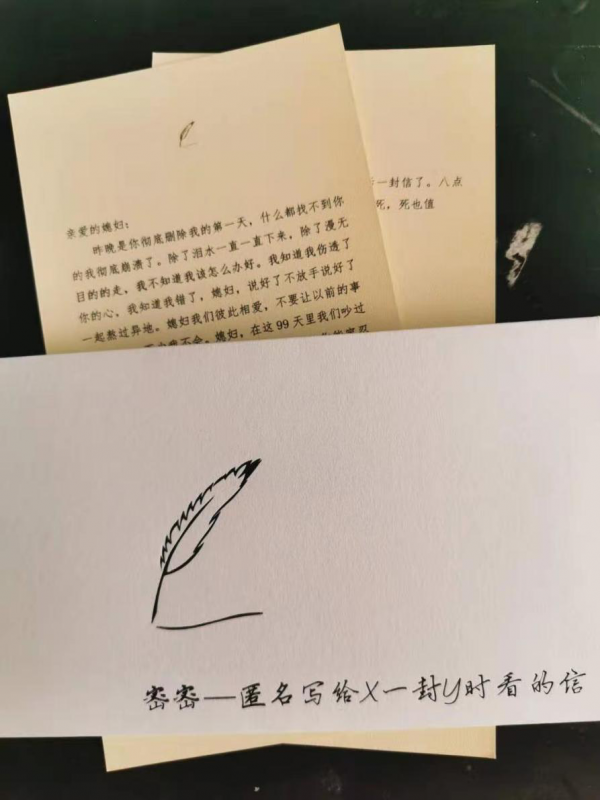 亲爱的媳妇：
昨晚是你彻底删除我的第一天，什么都找不到你
的我彻底崩溃了。除了泪水一直一直下来，除了漫无
目的的走，我不知道我该怎么办好。我知道我伤透了
你的心，我知道我错了，媳妇，说好了不放手说好了
一起熬过异地。媳妇我们彼此相爱，不要让以前的事
不会。媳妇，在这99天里我们吵过
一封信了。八点
死，死也值
密密—匿名写给X一封Y时看的信